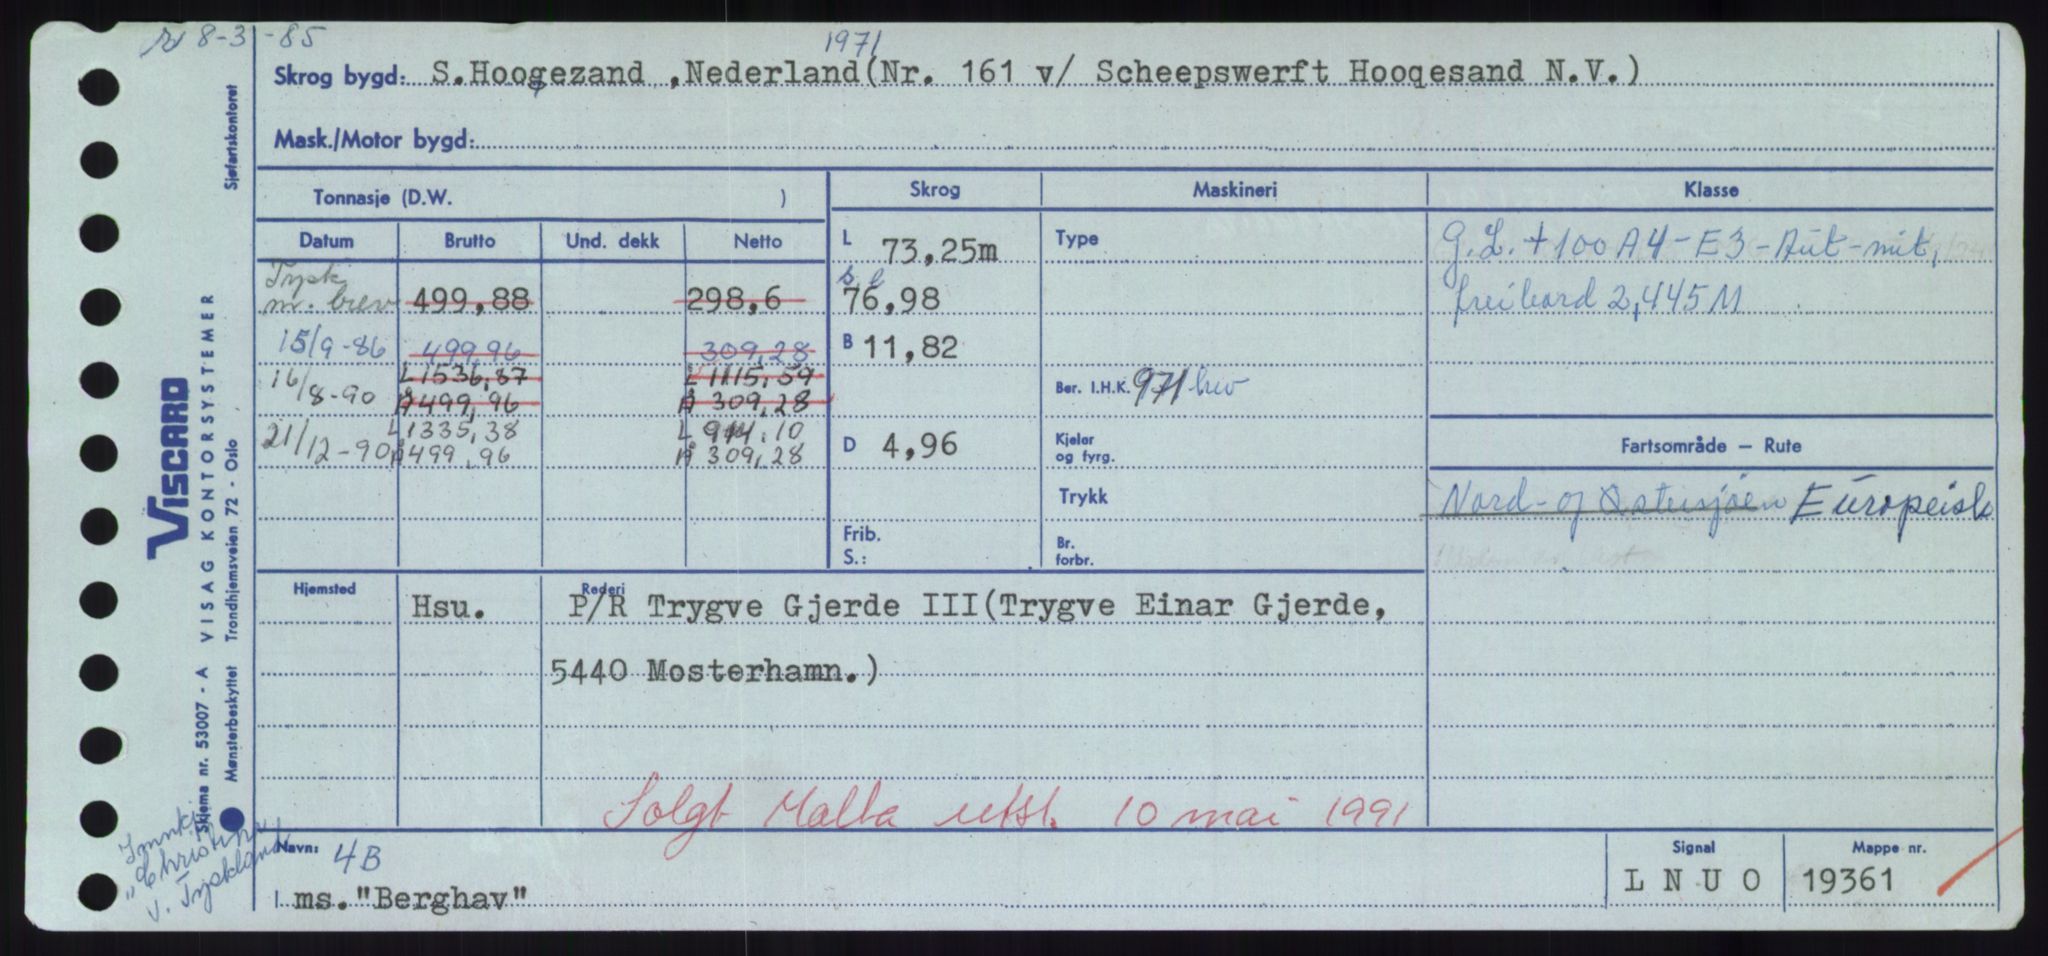 8-3-85
1971
Skrog bygd: S.Hoogezand ,Nederland(Nr. 161 v/ Scheepswerft Hooqesand N.V.)
Mask./Motor bygd:
Tonnasje (D.W. )
Skrog
Maskineri
Klasse
Datum Brutto Und. dekk Netto
L 73,25m
Type
G.L. + 100 A4 - E3 - Aut - mit,
freibord 2,445 M
Tysk
m. brev 499,88 298,6
76,98
15/9-86 499,96 309,28
B 11,82
16/8-90 L 1536,37 L 1115,59
Å 499,96 Å 309,28
Ber. I.H.K. 971 hev
21/12-90 L 1335,38 L 914,10
Å 499,96 Å 309,28
D 4,96
Kjeler
og fyrg.
Fartsområde — Rute
Trykk
Nord- og Østersjøen Europeisk
Frib.
S.:
Br.
forbr.
Hjemsted
Hsu.
Rederi
P/R Trygve Gjerde III(Trygve Einar Gjerde,
5440 Mosterhamn.)
Solgt Malta utsl. 10 mai 1991
Navn: 4B
ms."Berghav"
Signal
L N U O
Mappe nr.
19361
VISCARD
VISAG KONTORSYSTEMER
Skjema nr. 53007 - A
Mønsterbeskyttet Trondhjemsveien 72 - Oslo
Sjøfartskontoret
Innkj.
"Christina"
v. Tyskland